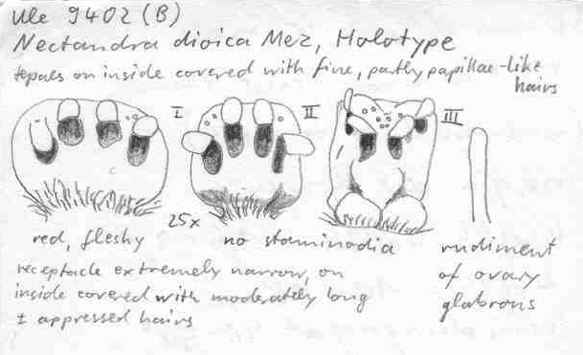 Ule 9402 (B)
Nectandra dioica Mez, Holotype
tepals on inside covered with fine, partly papillae-like
hairs
I II III
25x
red, fleshy no staminodia rudiment
receptacle extremely narrow, on of ovary
inside covered with moderately long glabrous
± appressed hairs